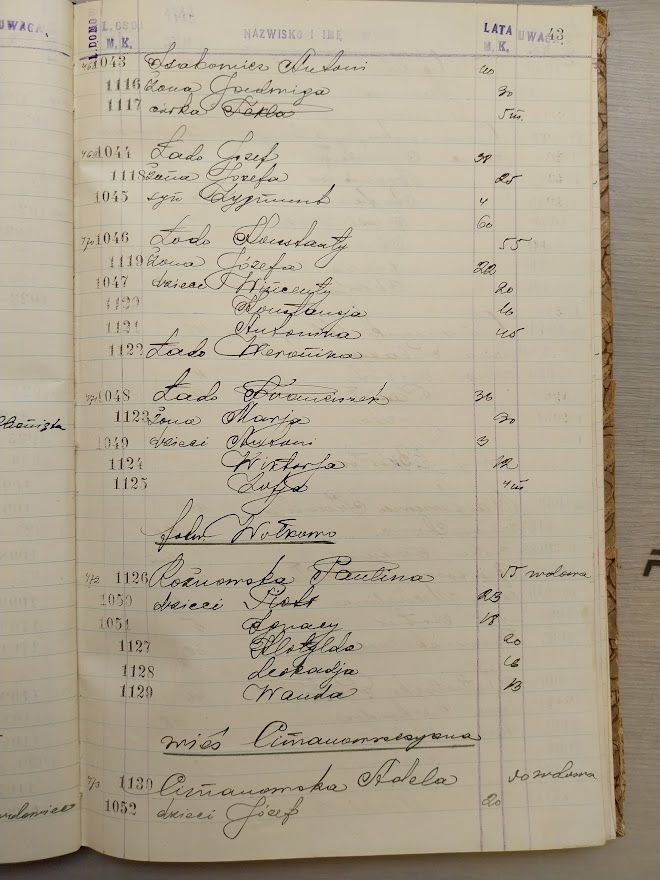 UWAGA
L.DOMO L. OSÓB M. K. NAZWISKO I IMĘ LATA M. K. UWAGA 43
468 1043 Antoni 40
1116 żona Jadwiga 30
1117 córka Tekla 5 m.
469 1044 Łado Józef 38
1118 żona Józefa 25
1045 syn Zygmunt 4
60
470 1046 Łado Konstanty 55
1119 żona Józefa 22
1047 dzieci Wincenty 20
1120 Konstancja 16
1121 Antonina 45
1122 Łado Weronika
471 1048 Łado Franciszek 36
1123 żona Marja 30
1049 dzieci Antoni 3
1124 Wiktorja 12
1125 Zofja 4 m.
folw. Wołkowo
472 1126 Paulina 55 wdowa
1050 dzieci Piotr 23
1051 Ignacy 18
1127 Klotylda 20
1128 Leokadja 16
1129 Wanda 13
wieś Cimanowszczyzna
473 1130 Cimanowska Adela 50 wdowa
1052 dzieci Józef 20